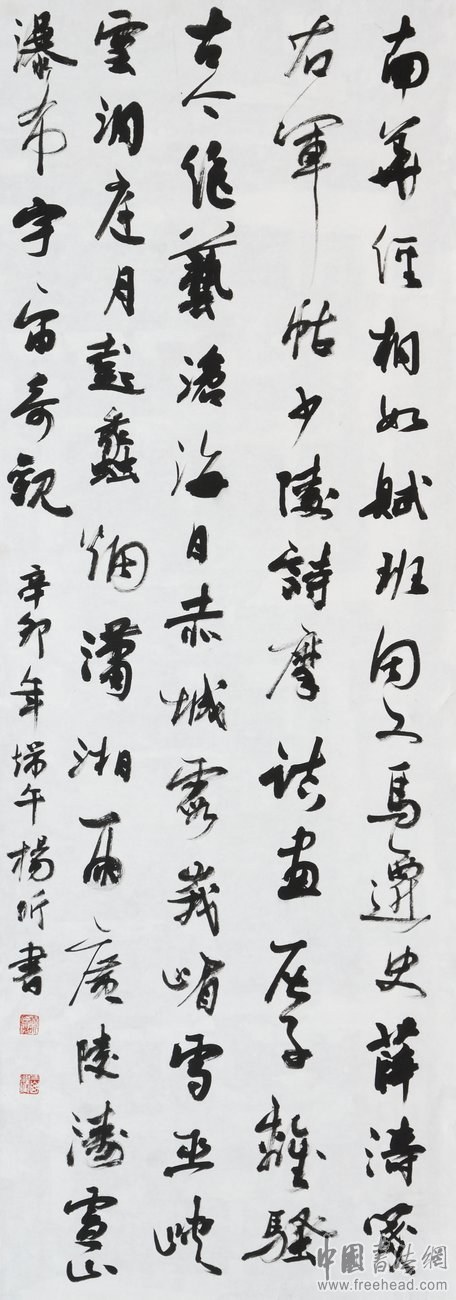 南華經相如賦班固文馬遷史薛濤箋
右軍帖少陵詩摩詰畫屈子離騷
古今絕藝滄海日赤城霞峨嵋雪巫峽
雲洞庭月彭蠡煙瀟湘雨廣陵濤廬山
瀑布宇宙奇觀
辛卯年端午楊書
中國書法網
www.freehead.com